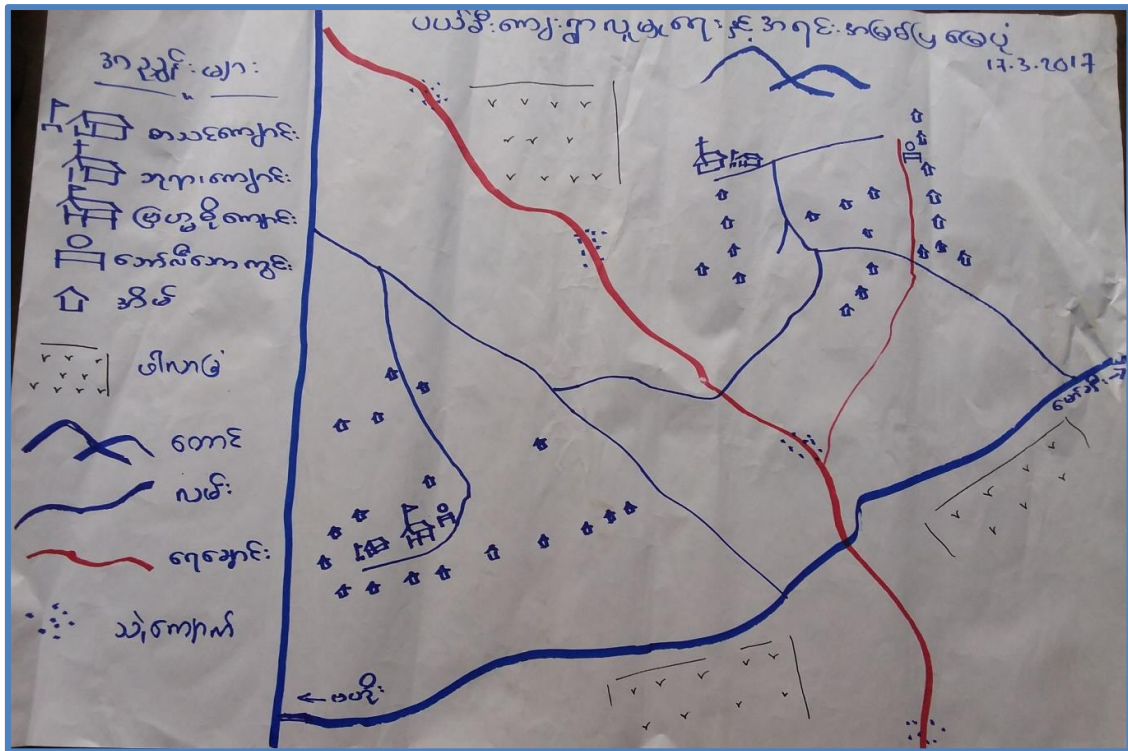 ပယ်ခီးကျေးရွာ လူမှုရေးနှင့် အရင်းအမြစ်ပြ မြေပုံ
17.3.2017
အညွှန်းများ
စာသင်ကျောင်း
ဘုရားကျောင်း
မြဟ္မစိုကျောင်း
ဘော်လီဘောကွင်း
အိမ်
ဖါလာခြံ
တောင်
လမ်း
ရေချောင်း
သဲ၊ကျောက်
← ဗဟိုး